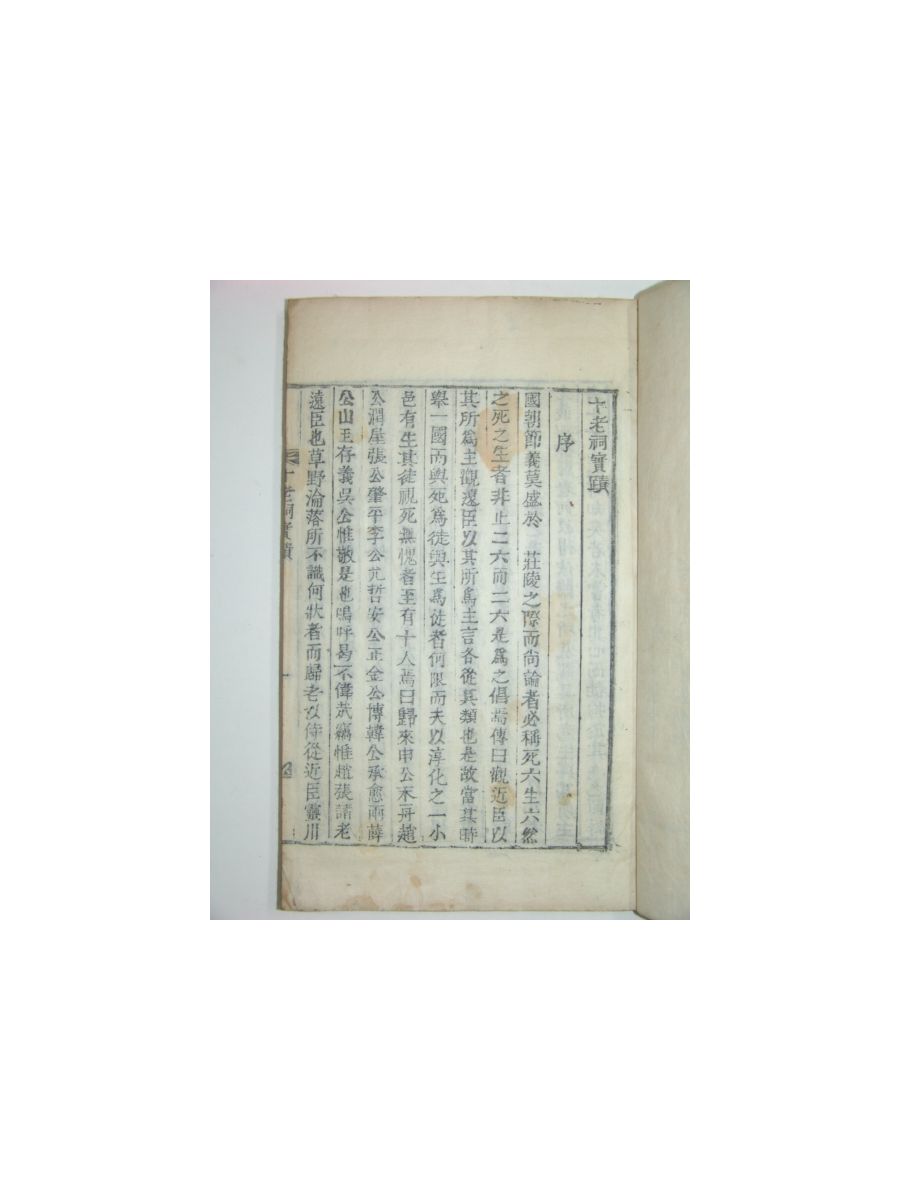 十老祠實蹟
序
國朝節義莫盛於 莊陵之際而尙論者必稱死六生六然
之死之生者非止二六而二六是爲之倡焉傳曰觀近臣以
其所爲主觀遠臣以其所爲主言各從其類也是故當其時
擧一國而與死爲徒與生爲徒者何限而夫以淳化之一小
邑有生其徒視死無愧者至有十人焉曰歸來申公末舟趙
公潤屋張公肇平李公允哲安公正金公博韓公承愈雨薛
公山玉存義吳公惟敬是也嗚呼曷不偉哉竊惟趙張諸老
遠臣也草野淪落所不識何狀者而歸老以侍從近臣靈川
十老祠實蹟
一